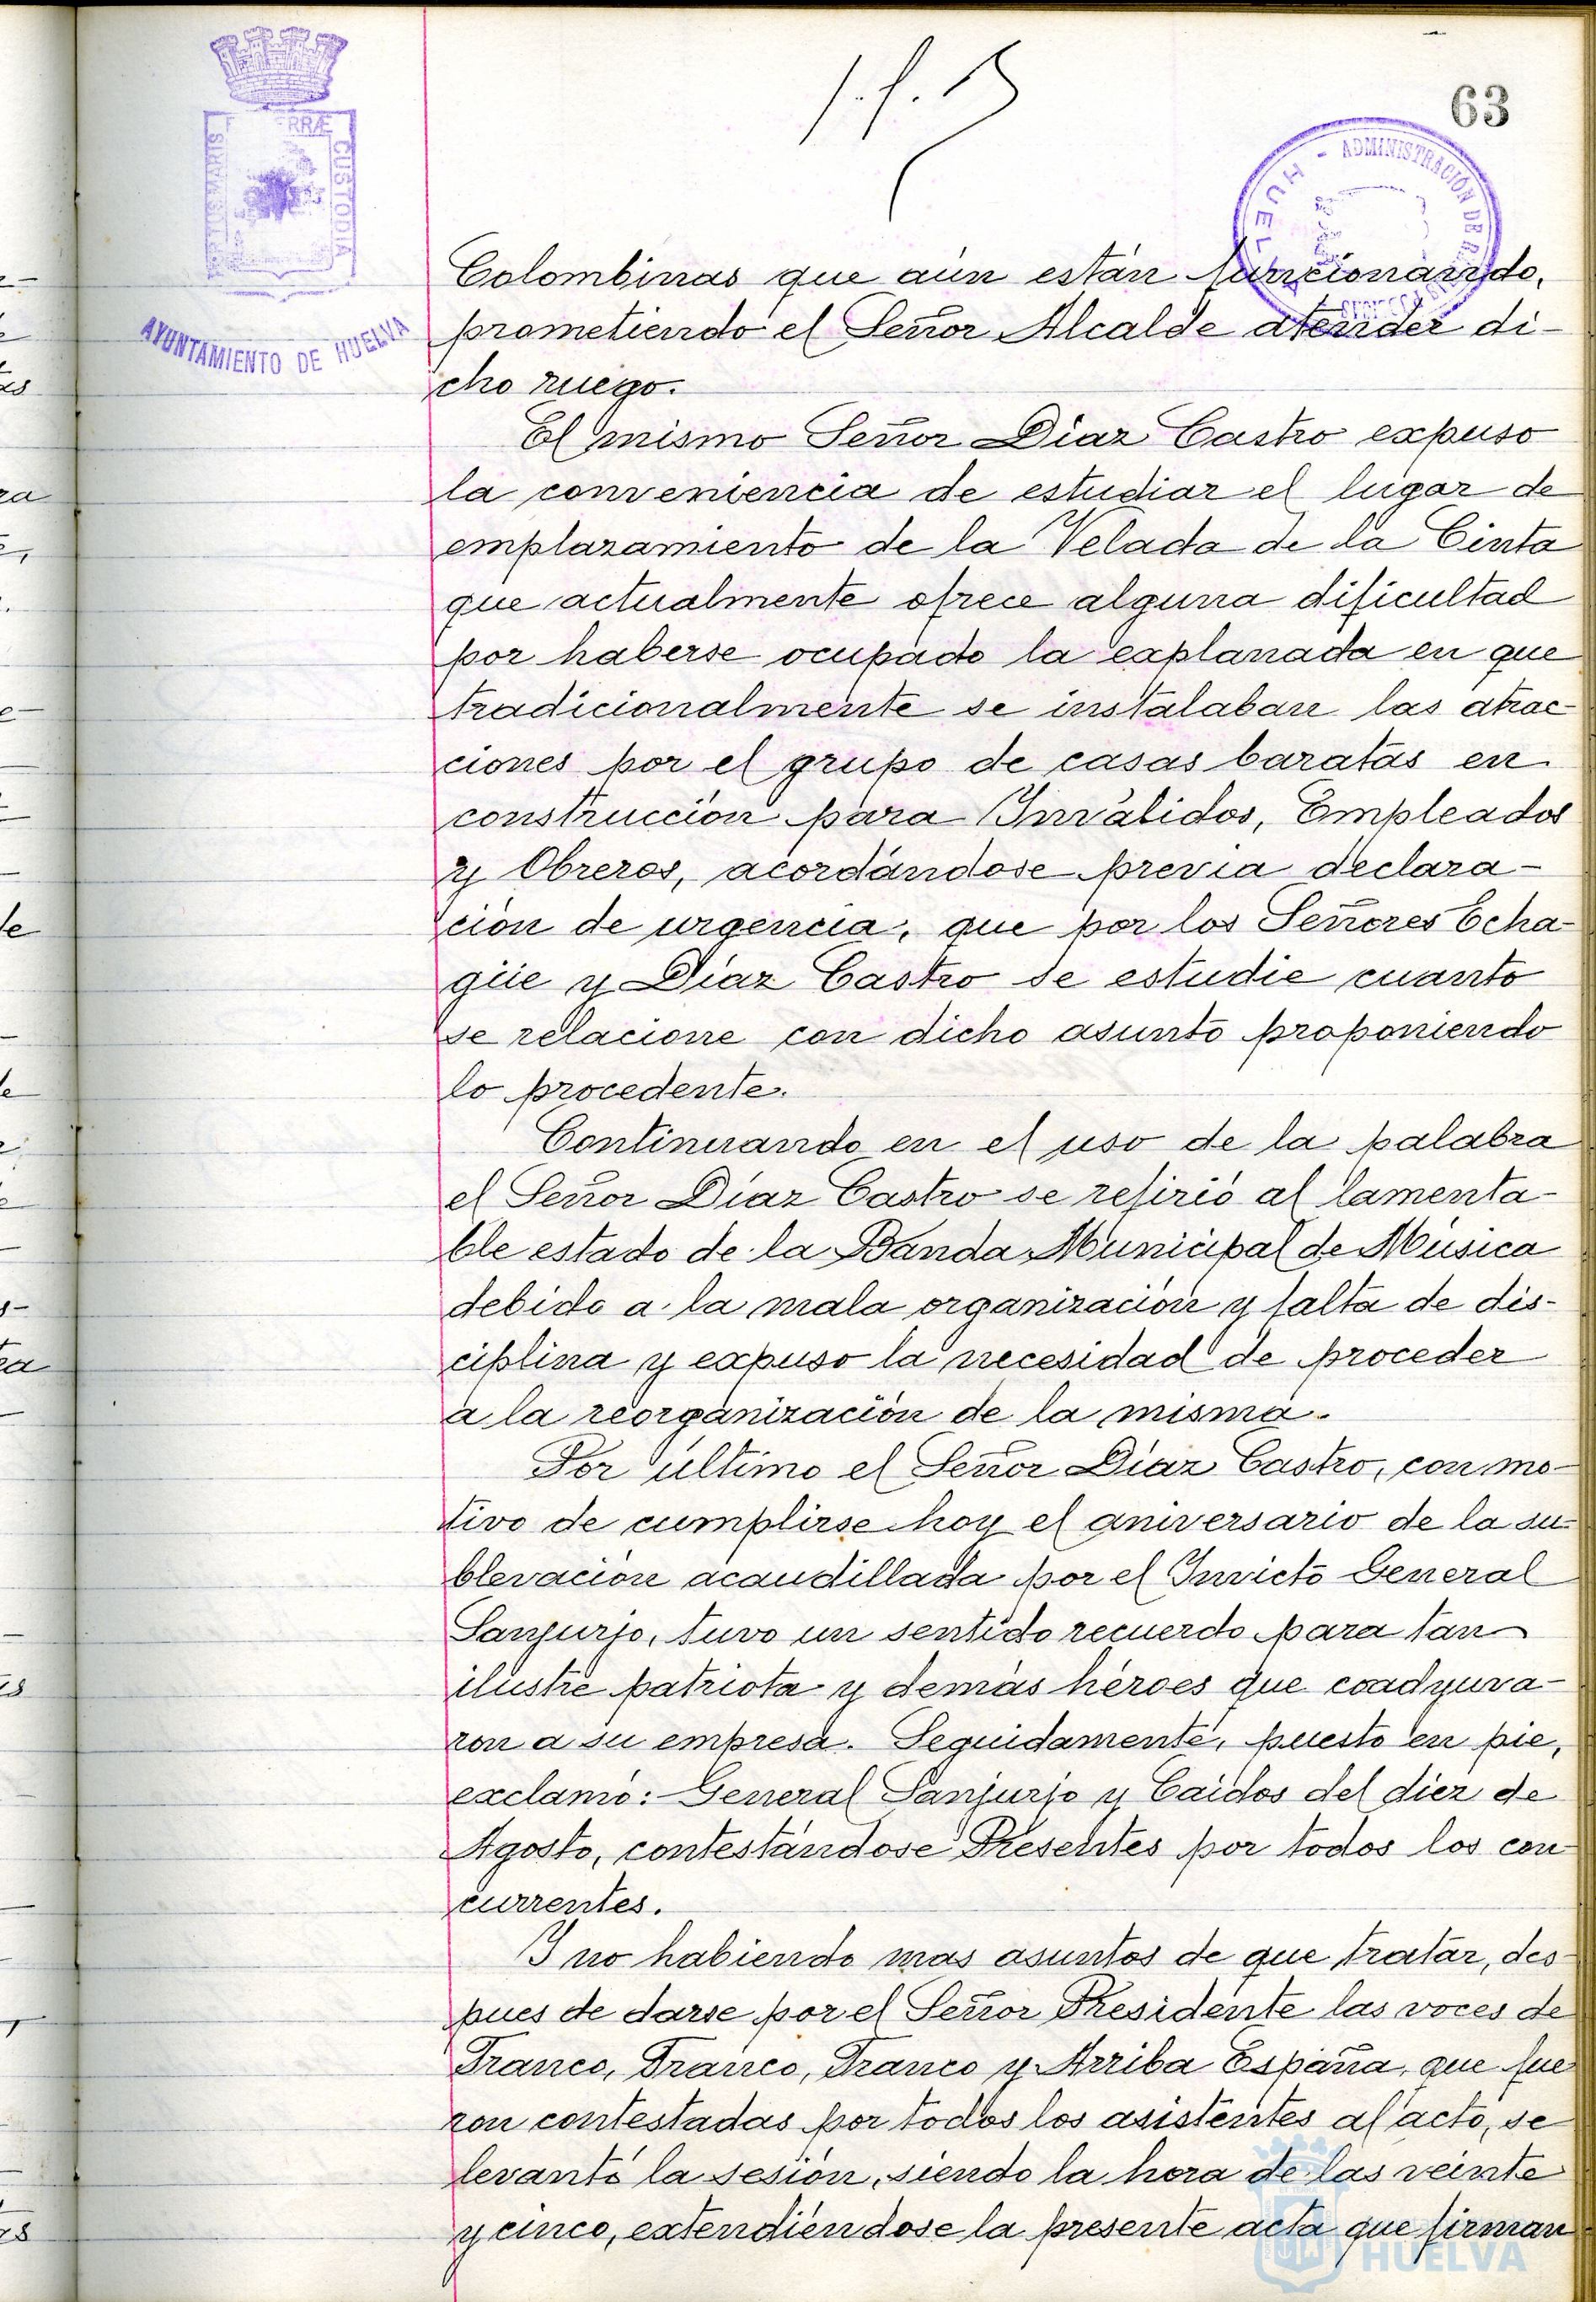 63
PORTUS MARIS
TERRÆ
CUSTODIA
AYUNTAMIENTO DE HUELVA
HUELVA - ADMINISTRACIÓN DE
Colombinas que aún están funcionando,
prometiendo el Señor Alcalde atender di-
cho ruego.
El mismo Señor Díaz Castro expuso
la conveniencia de estudiar el lugar de
emplazamiento de la Velada de la Cinta
que actualmente ofrece alguna dificultad
por haberse ocupado la explanada en que
tradicionalmente se instalaban las atrac-
ciones por el grupo de casas baratas en
construcción para Inválidos, Empleados
y Obreros, acordándose previa declara-
ción de urgencia, que por los Señores Echa-
güe y Díaz Castro se estudie cuanto
se relacione con dicho asunto proponiendo
lo procedente.
Continuando en el uso de la palabra
el Señor Díaz Castro se refirió al lamenta-
ble estado de la Banda Municipal de Música
debido a la mala organización y falta de dis-
ciplina y expuso la necesidad de proceder
a la reorganización de la misma.
Por último el Señor Díaz Castro, con mo-
tivo de cumplirse hoy el aniversario de la su-
blevación acaudillada por el Invicto General
Sanjurjo, tuvo un sentido recuerdo para tan
ilustre patriota y demás héroes que coadyuva-
ron a su empresa. Seguidamente, puesto en pie,
exclamó: - General Sanjurjo y Caídos del diez de
Agosto, contestándose Presentes por todos los con
currentes.
Y no habiendo mas asuntos de que tratar, des-
pues de darse por el Señor Presidente las voces de
Franco, Franco, Franco y Arriba España, que fue
ron contestadas por todos los asistentes al acto, se
levantó la sesión, siendo la hora de las veinte
y cinco, extendiéndose la presente acta que firman
HUELVA